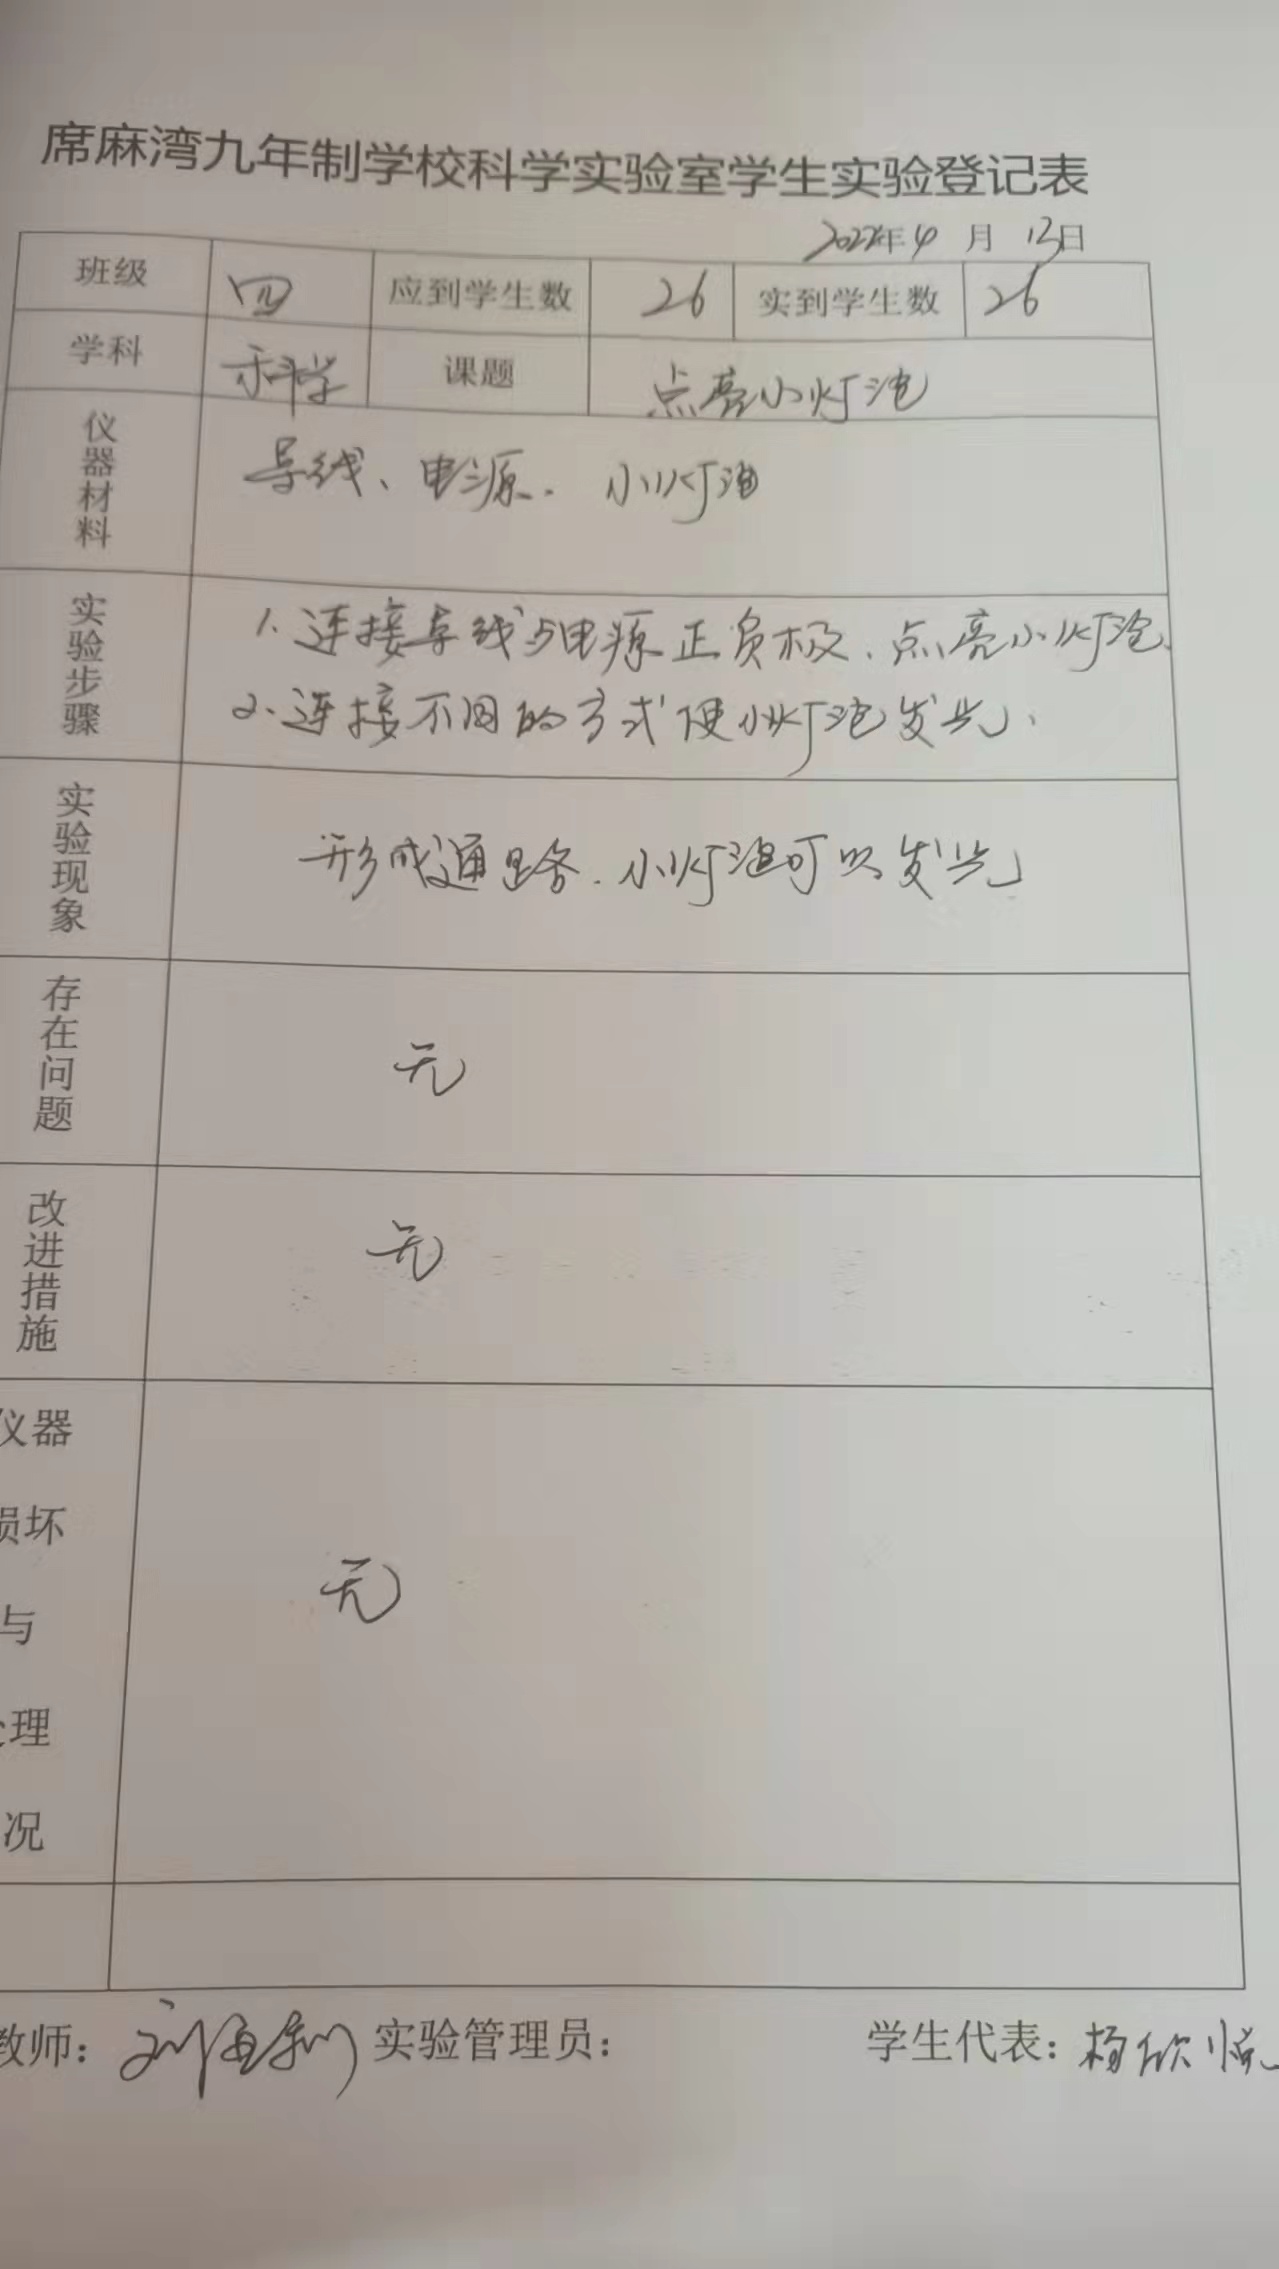 席麻湾九年制学校科学实验室学生实验登记表
2022年4月13日
班级 四 应到学生数 26 实到学生数 26
学科 科学 课题 点亮小灯泡
仪器材料 导线、电源、小灯泡
实验步骤 1.连接导线与电源正负极、点亮小灯泡、
2.连接不同的方式使小灯泡发光、
实验现象 形成通路、小灯泡可以发光
存在问题 无
改进措施 无
仪器
损坏
与 无
处理
况
教师： 实验管理员： 学生代表：杨欣悦